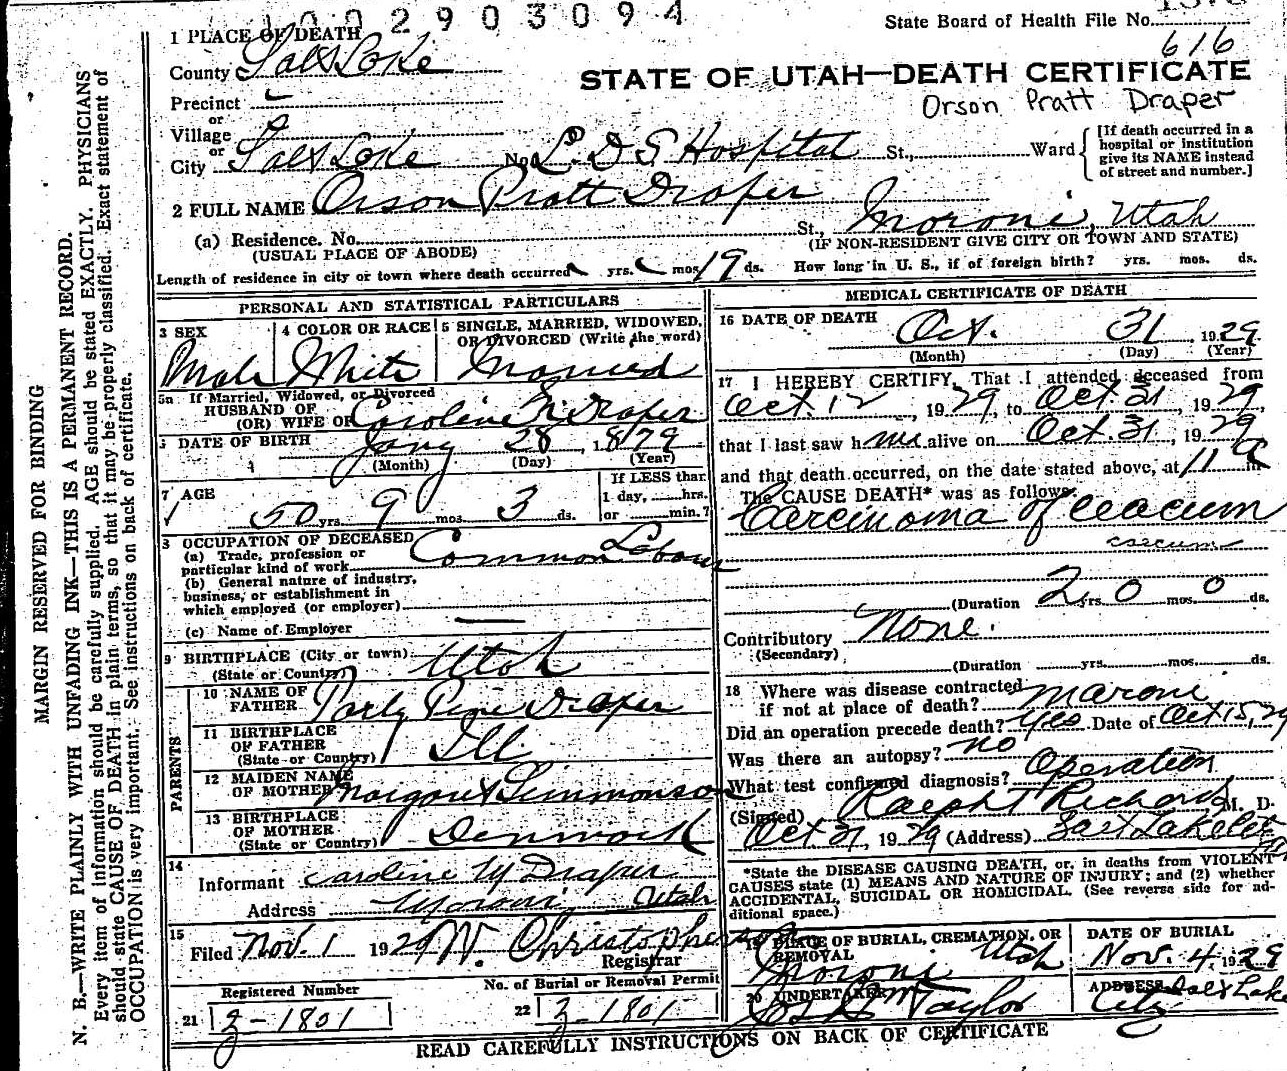 1002903094
State Board of Health File No.
616
1 PLACE OF DEATH
County Salt Lake
STATE OF UTAH—DEATH CERTIFICATE
Precinct
Orson Pratt Draper
or
Village
or
City Salt Lake No. L. D S Hospital St., Ward
[If death occurred in a
hospital or institution
give its NAME instead
of street and number.]
2 FULL NAME Orson Pratt Draper
(a) Residence. No. St., Moroni, Utah
(USUAL PLACE OF ABODE) (IF NON-RESIDENT GIVE CITY OR TOWN AND STATE)
Length of residence in city or town where death occurred yrs. mos. 19 ds. How long in U. S., if of foreign birth? yrs. mos. ds.
PERSONAL AND STATISTICAL PARTICULARS
3 SEX 4 COLOR OR RACE 5 SINGLE, MARRIED, WIDOWED,
OR DIVORCED (Write the word)
Male White Married
5a If Married, Widowed, or Divorced
HUSBAND OF
(OR) WIFE OF Caroline N. Draper
DATE OF BIRTH Jany 28, 1879
(Month) (Day) (Year)
7 AGE If LESS than
1 day, hrs.
50 yrs. 9 mos. 3 ds. or min.?
OCCUPATION OF DECEASED
(a) Trade, profession or
particular kind of work Common Labour
(b) General nature of industry,
business, or establishment in
which employed (or employer)
(c) Name of Employer
9 BIRTHPLACE (City or town)
(State or Country) Utah
PARENTS
10 NAME OF
FATHER Parly Draper
11 BIRTHPLACE
OF FATHER
(State or Country) Ill
12 MAIDEN NAME
OF MOTHER Simmonson
13 BIRTHPLACE
OF MOTHER
(State or Country) Denmark
14
Informant Caroline Draper
Address Moroni, Utah
15
Filed Nov. 1 1929 W. Christopherson
Registrar
Registered Number No. of Burial or Removal Permit
21 3-1801 22 3-1801
MEDICAL CERTIFICATE OF DEATH
16 DATE OF DEATH
Oct. 31, 1929
(Month) (Day) (Year)
17 I HEREBY CERTIFY, That I attended deceased from
Oct. 12, 1929, to Oct 31, 1929,
that I last saw him alive on Oct. 31, 1929
and that death occurred, on the date stated above, at 11 a m
The CAUSE DEATH* was as follows:
Carcinoma of ceacum
caecum
(Duration 2 yrs. 0 mos. 0 ds.
Contributory None.
(Secondary)
(Duration yrs. mos. ds.
18 Where was disease contracted
if not at place of death? Maroni
Did an operation precede death? Yes Date of Oct 15, 29
Was there an autopsy? no
What test confirmed diagnosis? Operation
(Signed) Ralph T Richards M. D.
Oct 31, 1929 (Address) Salt Lake City
*State the DISEASE CAUSING DEATH, or, in deaths from VIOLENT
CAUSES state (1) MEANS AND NATURE OF INJURY; and (2) whether
ACCIDENTAL, SUICIDAL OR HOMICIDAL. (See reverse side for ad-
ditional space.)
19 PLACE OF BURIAL, CREMATION, OR
REMOVAL
Moroni Utah
DATE OF BURIAL
Nov. 4, 1929
20 UNDERTAKER
Taylor
ADDRESS Salt Lake
City
READ CAREFULLY INSTRUCTIONS ON BACK OF CERTIFICATE
MARGIN RESERVED FOR BINDING
N. B.—WRITE PLAINLY WITH UNFADING INK—THIS IS A PERMANENT RECORD.
Every item of information should be carefully supplied. AGE should be stated EXACTLY. PHYSICIANS
should state CAUSE OF DEATH in plain terms, so that it may be properly classified. Exact statement of
OCCUPATION is very important. See instructions on back of certificate.